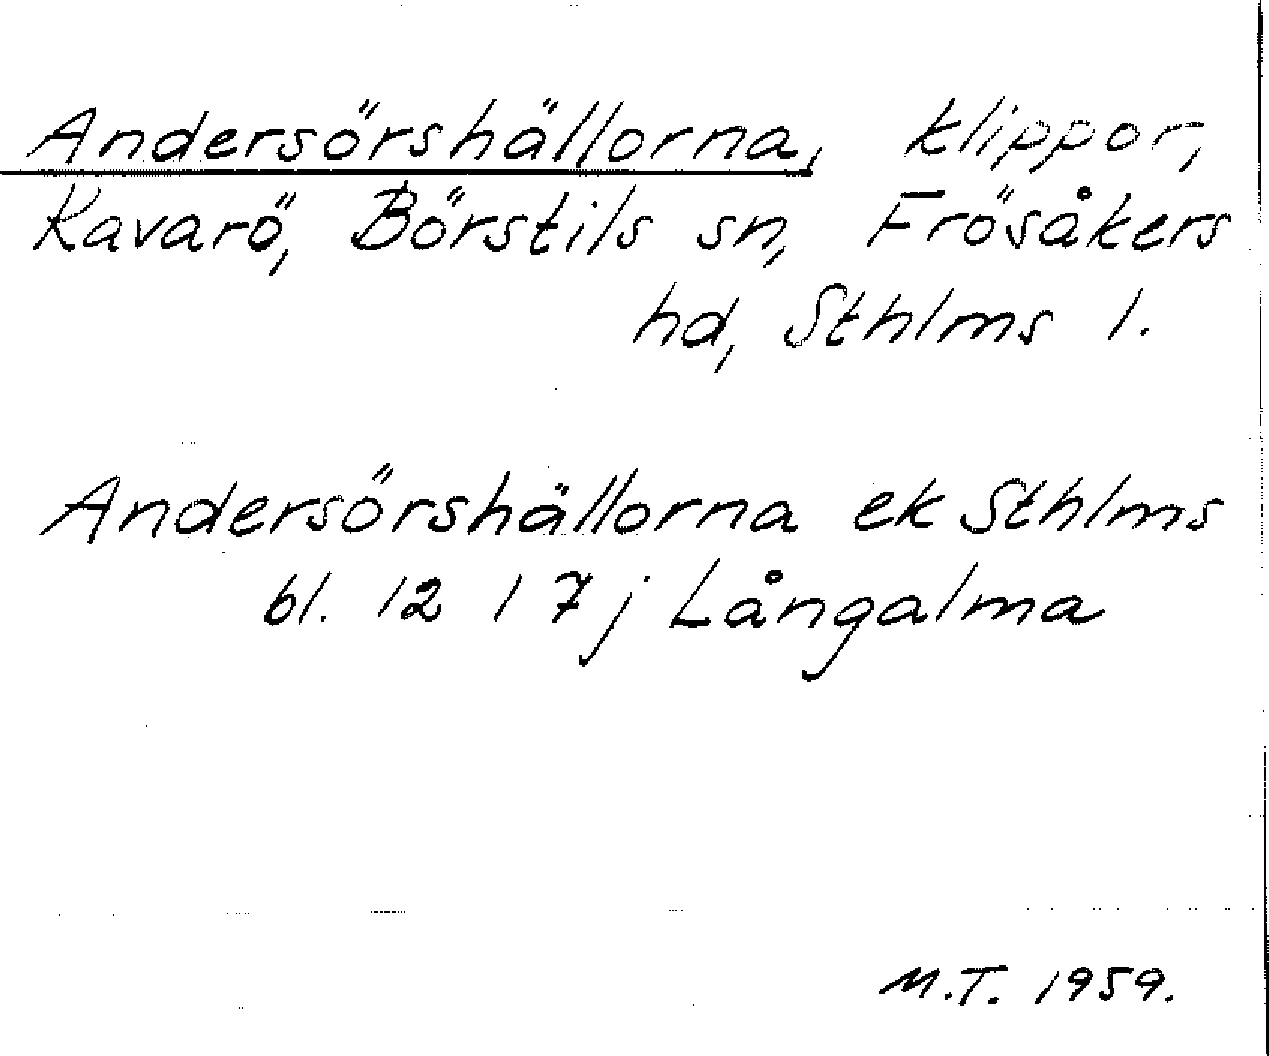 Andersörshällorna, klippor,
Kavarö, Börstils sn, Frösåkers
hd, Sthlms l.
Andersörshällorna ek Sthlms
bl. 12 I 7j Långalma
M.T. 1959.